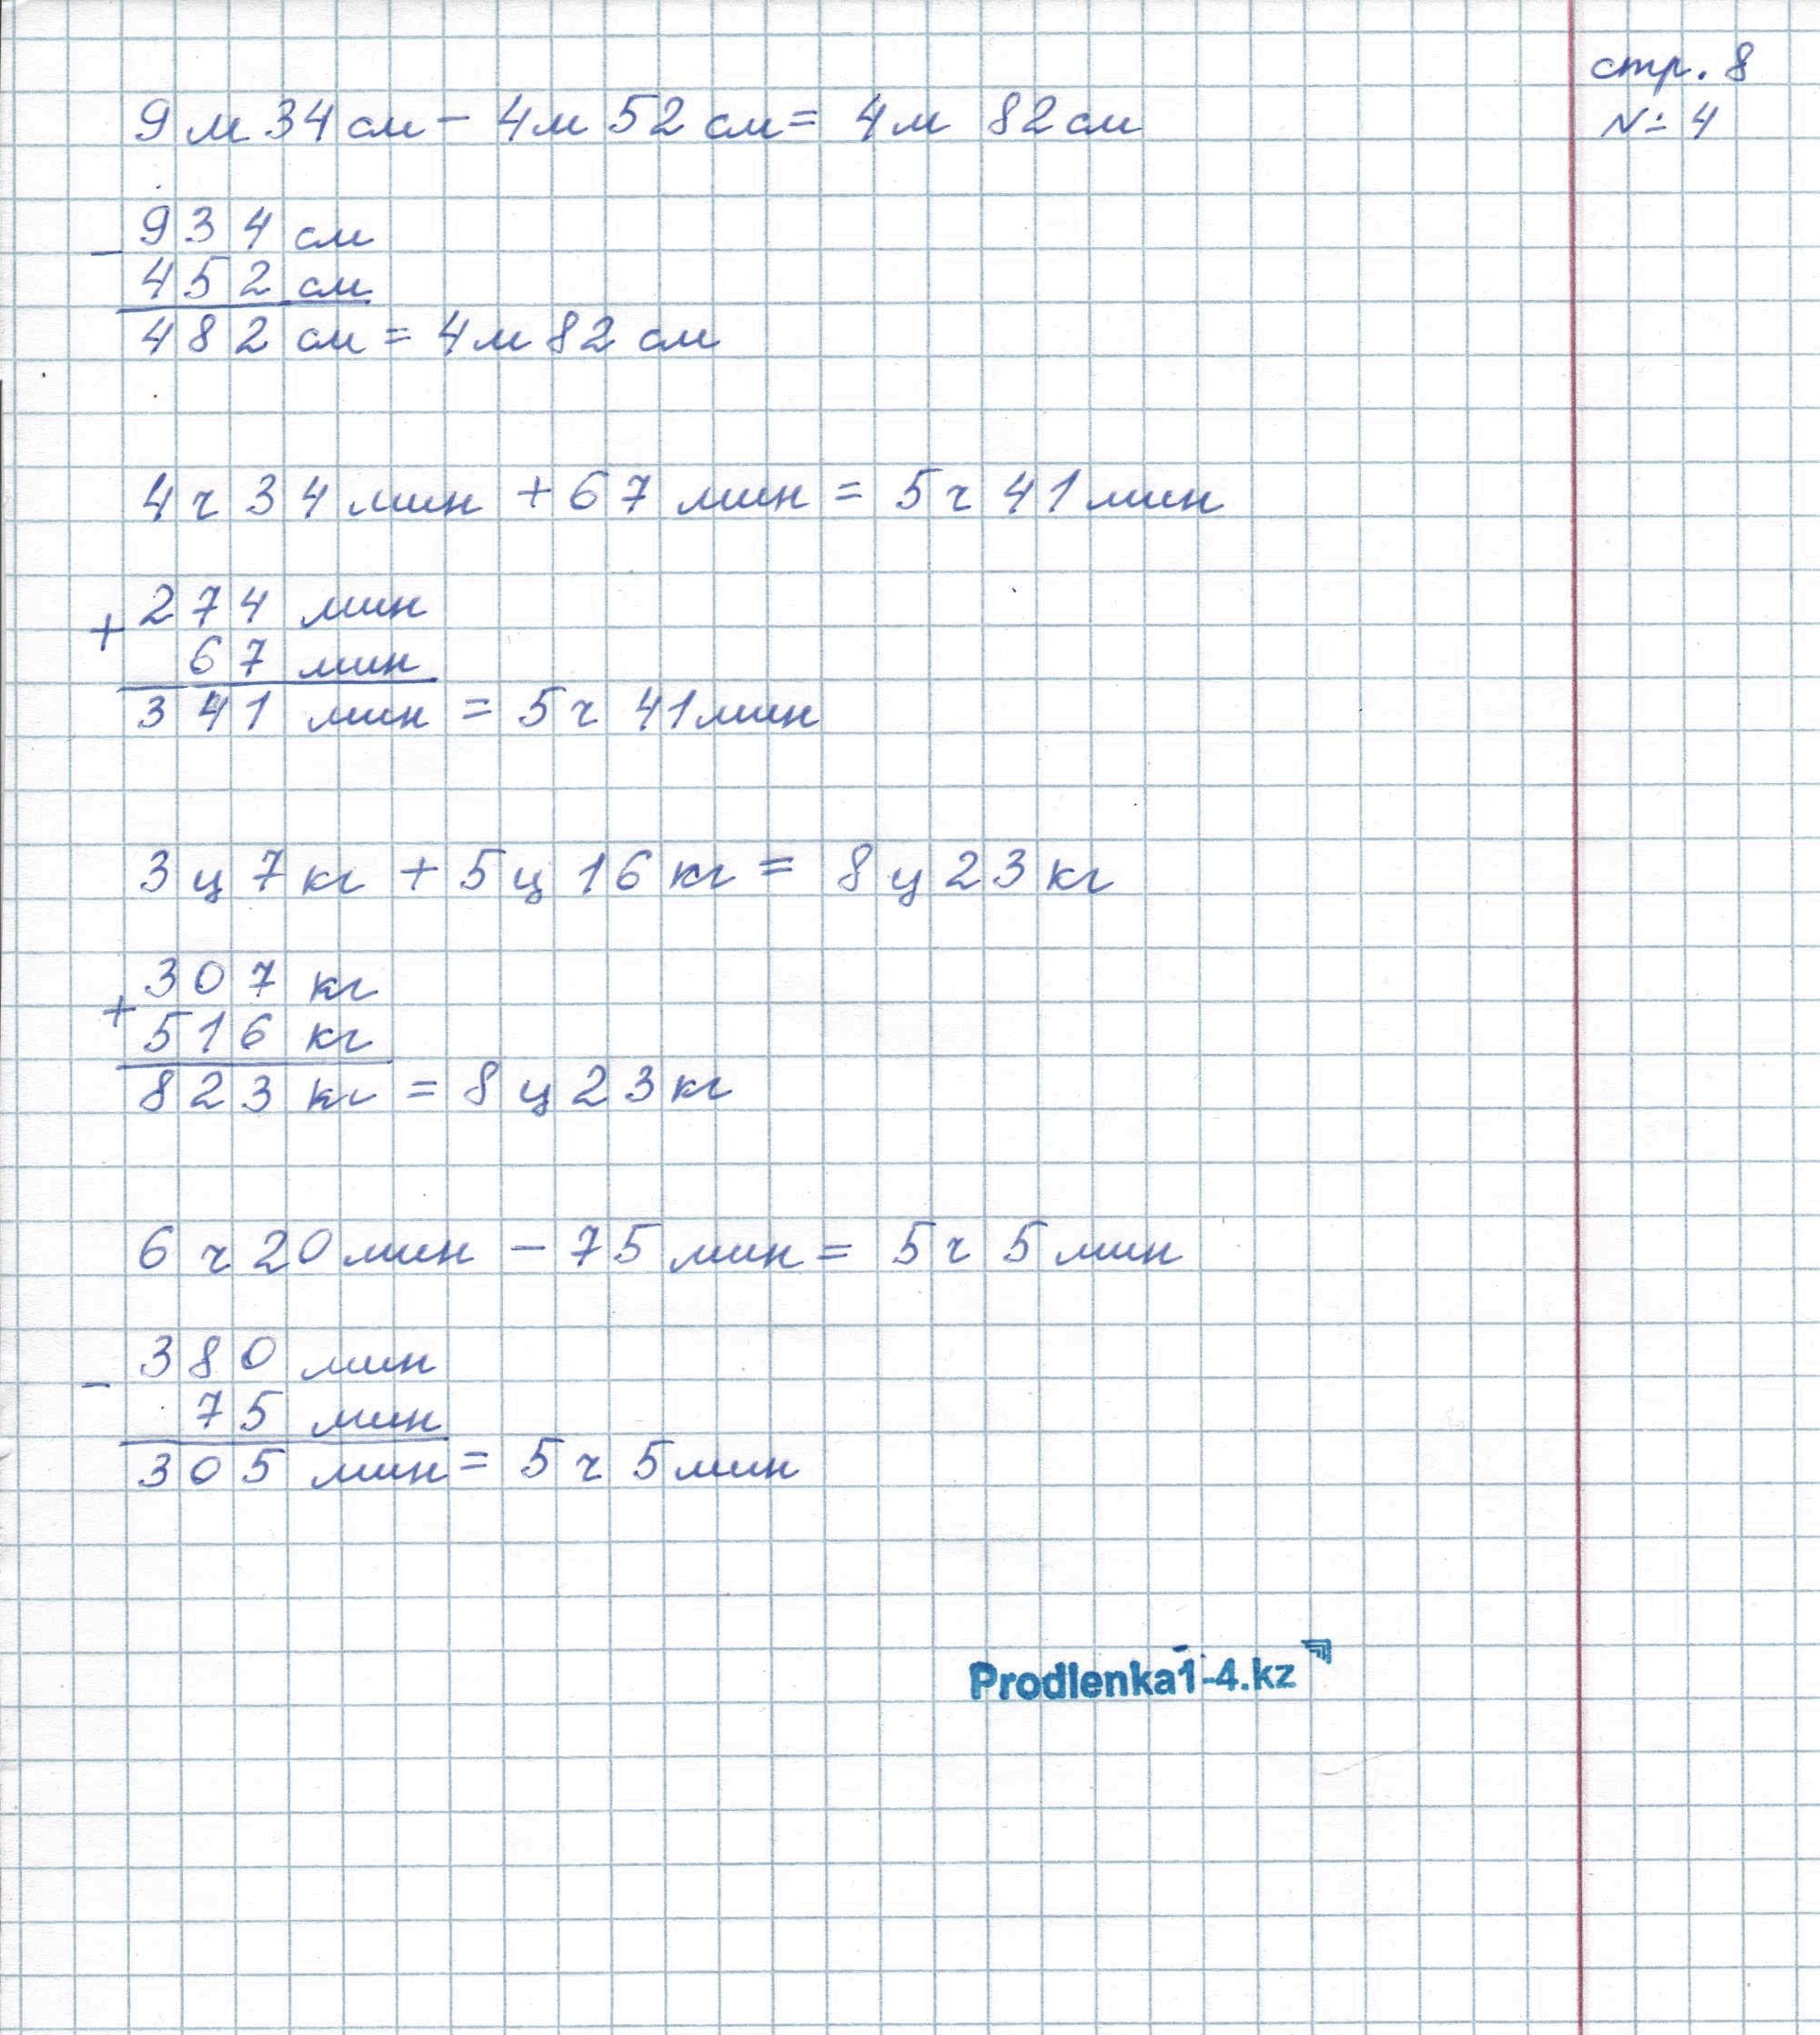 стр. 8
№ 4
9 м 34 см - 4 м 52 см = 4 м 82 см
- 934 см
452 см
482 см = 4 м 82 см
4 ч 34 мин + 67 мин = 5 ч 41 мин
+ 274 мин
67 мин
341 мин = 5 ч 41 мин
3 ц 7 кг + 5 ц 16 кг = 8 ц 23 кг
+ 307 кг
516 кг
823 кг = 8 ц 23 кг
6 ч 20 мин - 75 мин = 5 ч 5 мин
- 380 мин
75 мин
305 мин = 5 ч 5 мин
Prodlenka1-4.kz